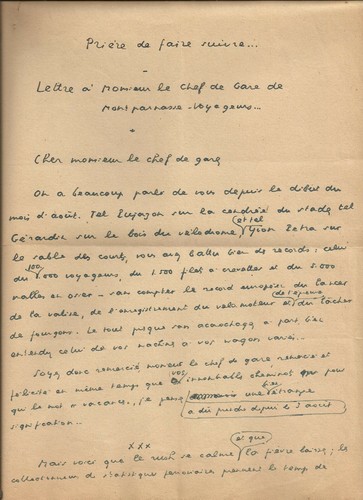 Prière de faire suivre...
Lettre à Monsieur le Chef de Gare de
Montparnasse-Voyageurs...
*
Cher monsieur le chef de gare
On a beaucoup parlé de vous depuis le début du
mois d'août. Tel Lunjaçon sur la cendrée du stade, tel
Gérardin sur le bois du vélodrome, et tel Yvon Petra sur
le sable des courts, vous avez battu bien des records : celui
du 100.000 voyageurs, du 1.500 filets à crevettes et du 5.000
malles en osier - sans compter le record européen du lancer
de la valise, de l'enregistrement du vélomoteur et de l'épreuve du lâcher
de fourgons. Le tout presque sans accrochage à part, bien
entendu celui de vos machins à vos wagons...
Soyez donc remercié monsieur le chef de gare, remercié et
félicité en même temps que vos innombrables cheminots pour
qui le mot "vacances", je pense a une étrange
signification...
a dû perdre depuis le 3 août
xxx
Mais voici que le rush se calme et que la fièvre baisse ; les
collectionneurs de statistiques ferroviaires prennent le temps de